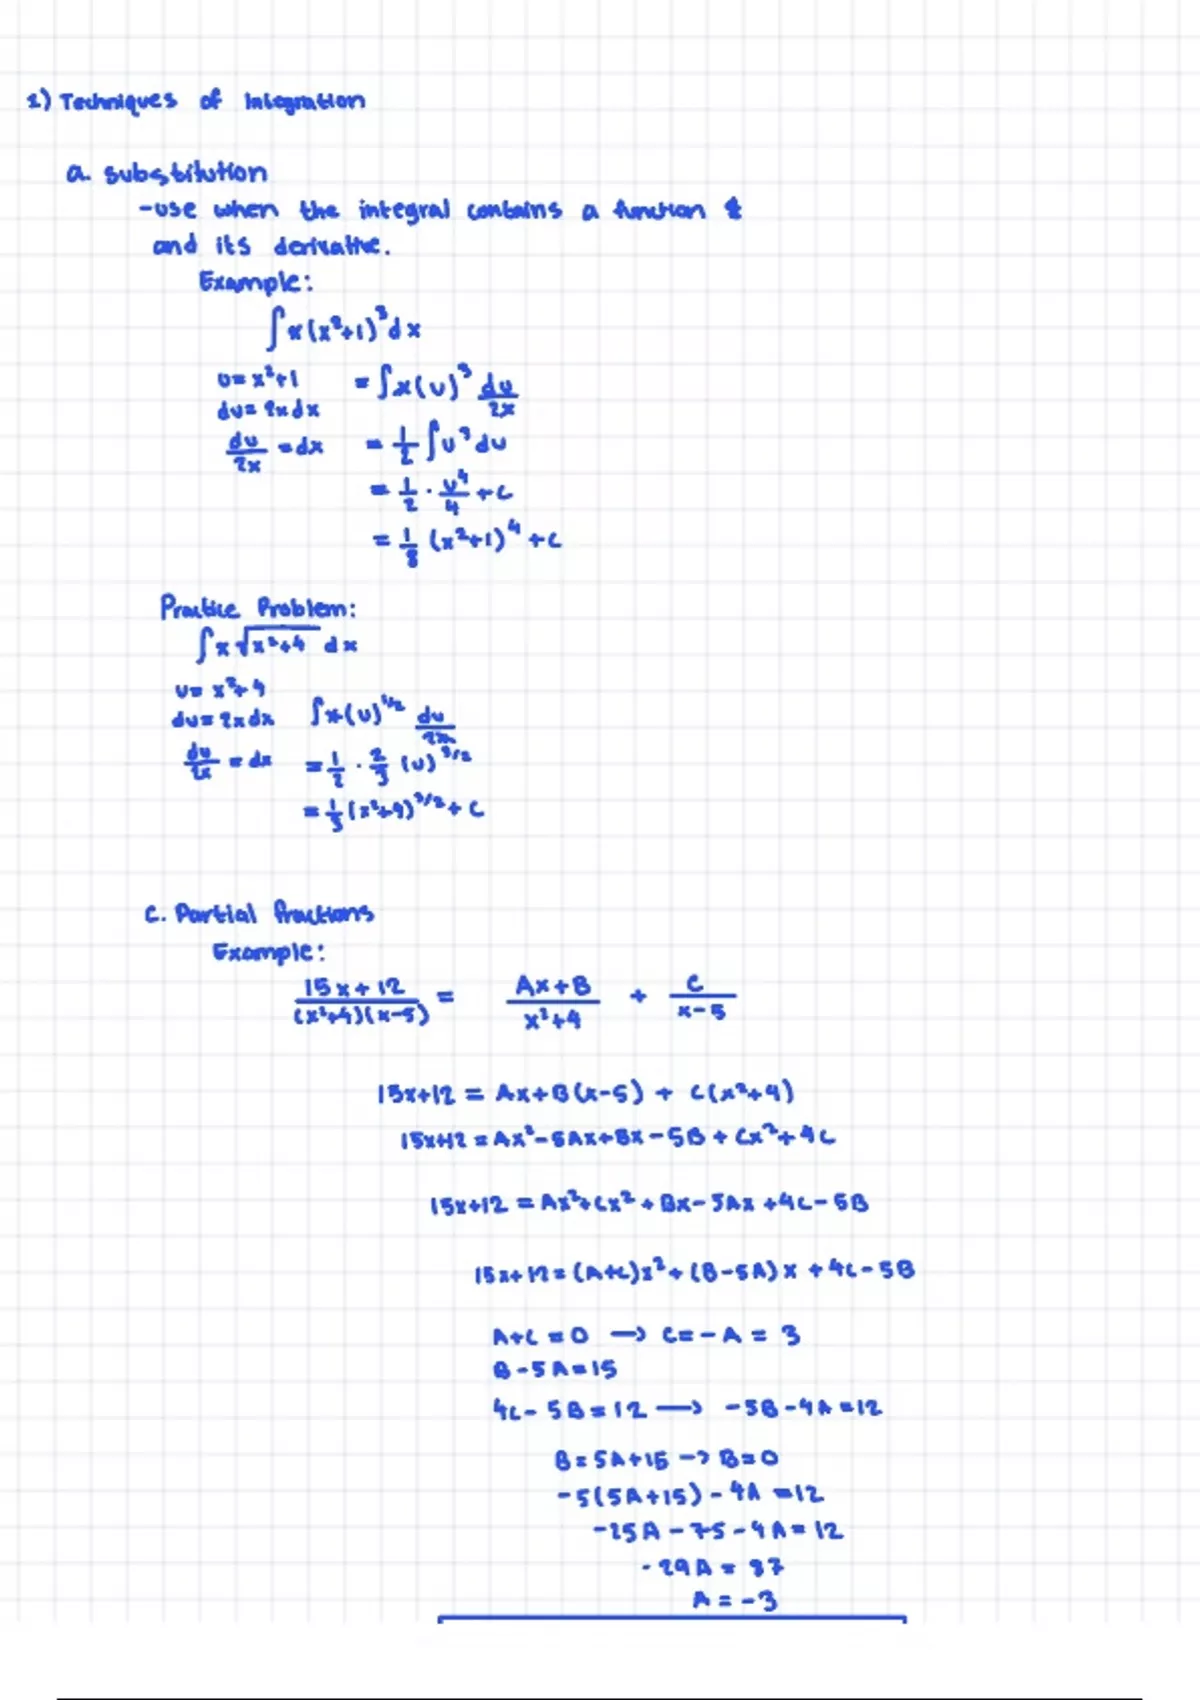 1) Techniques of Integration
a. substitution
-use when the integral contains a function &
and its derivative.
Example:
∫x(x²+1)³dx
u=x²+1 =∫x(u)³ du/2x
du=2xdx
du/2x =dx = 1/2 ∫u³du
= 1/2 · u⁴/4 +c
= 1/8 (x²+1)⁴ +c
Practice Problem:
∫x√(x²+4) dx
u= x²+4
du=2xdx ∫x(u)^1/2 du/2x
du/2x = dx = 1/2 · 2/3 (u)^3/2
= 1/3 (x²+4)^3/2 + C
C. Partial fractions
Example:
15x+12/(x²+4)(x-5) = Ax+B/x²+4 + C/x-5
15x+12 = Ax+B(x-5) + C(x²+4)
15x+12 = Ax²-5Ax+Bx-5B + Cx²+4C
15x+12 = Ax²+Cx² + Bx-5Ax +4C-5B
15x+12 = (A+C)x²+(B-5A)x +4C-5B
A+C = 0 → C=-A = 3
B-5A=15
4C-5B=12 → -5B-4A=12
B=5A+15 → B=0
-5(5A+15)-4A =12
-25A-75-4A=12
-29A = 87
A = -3